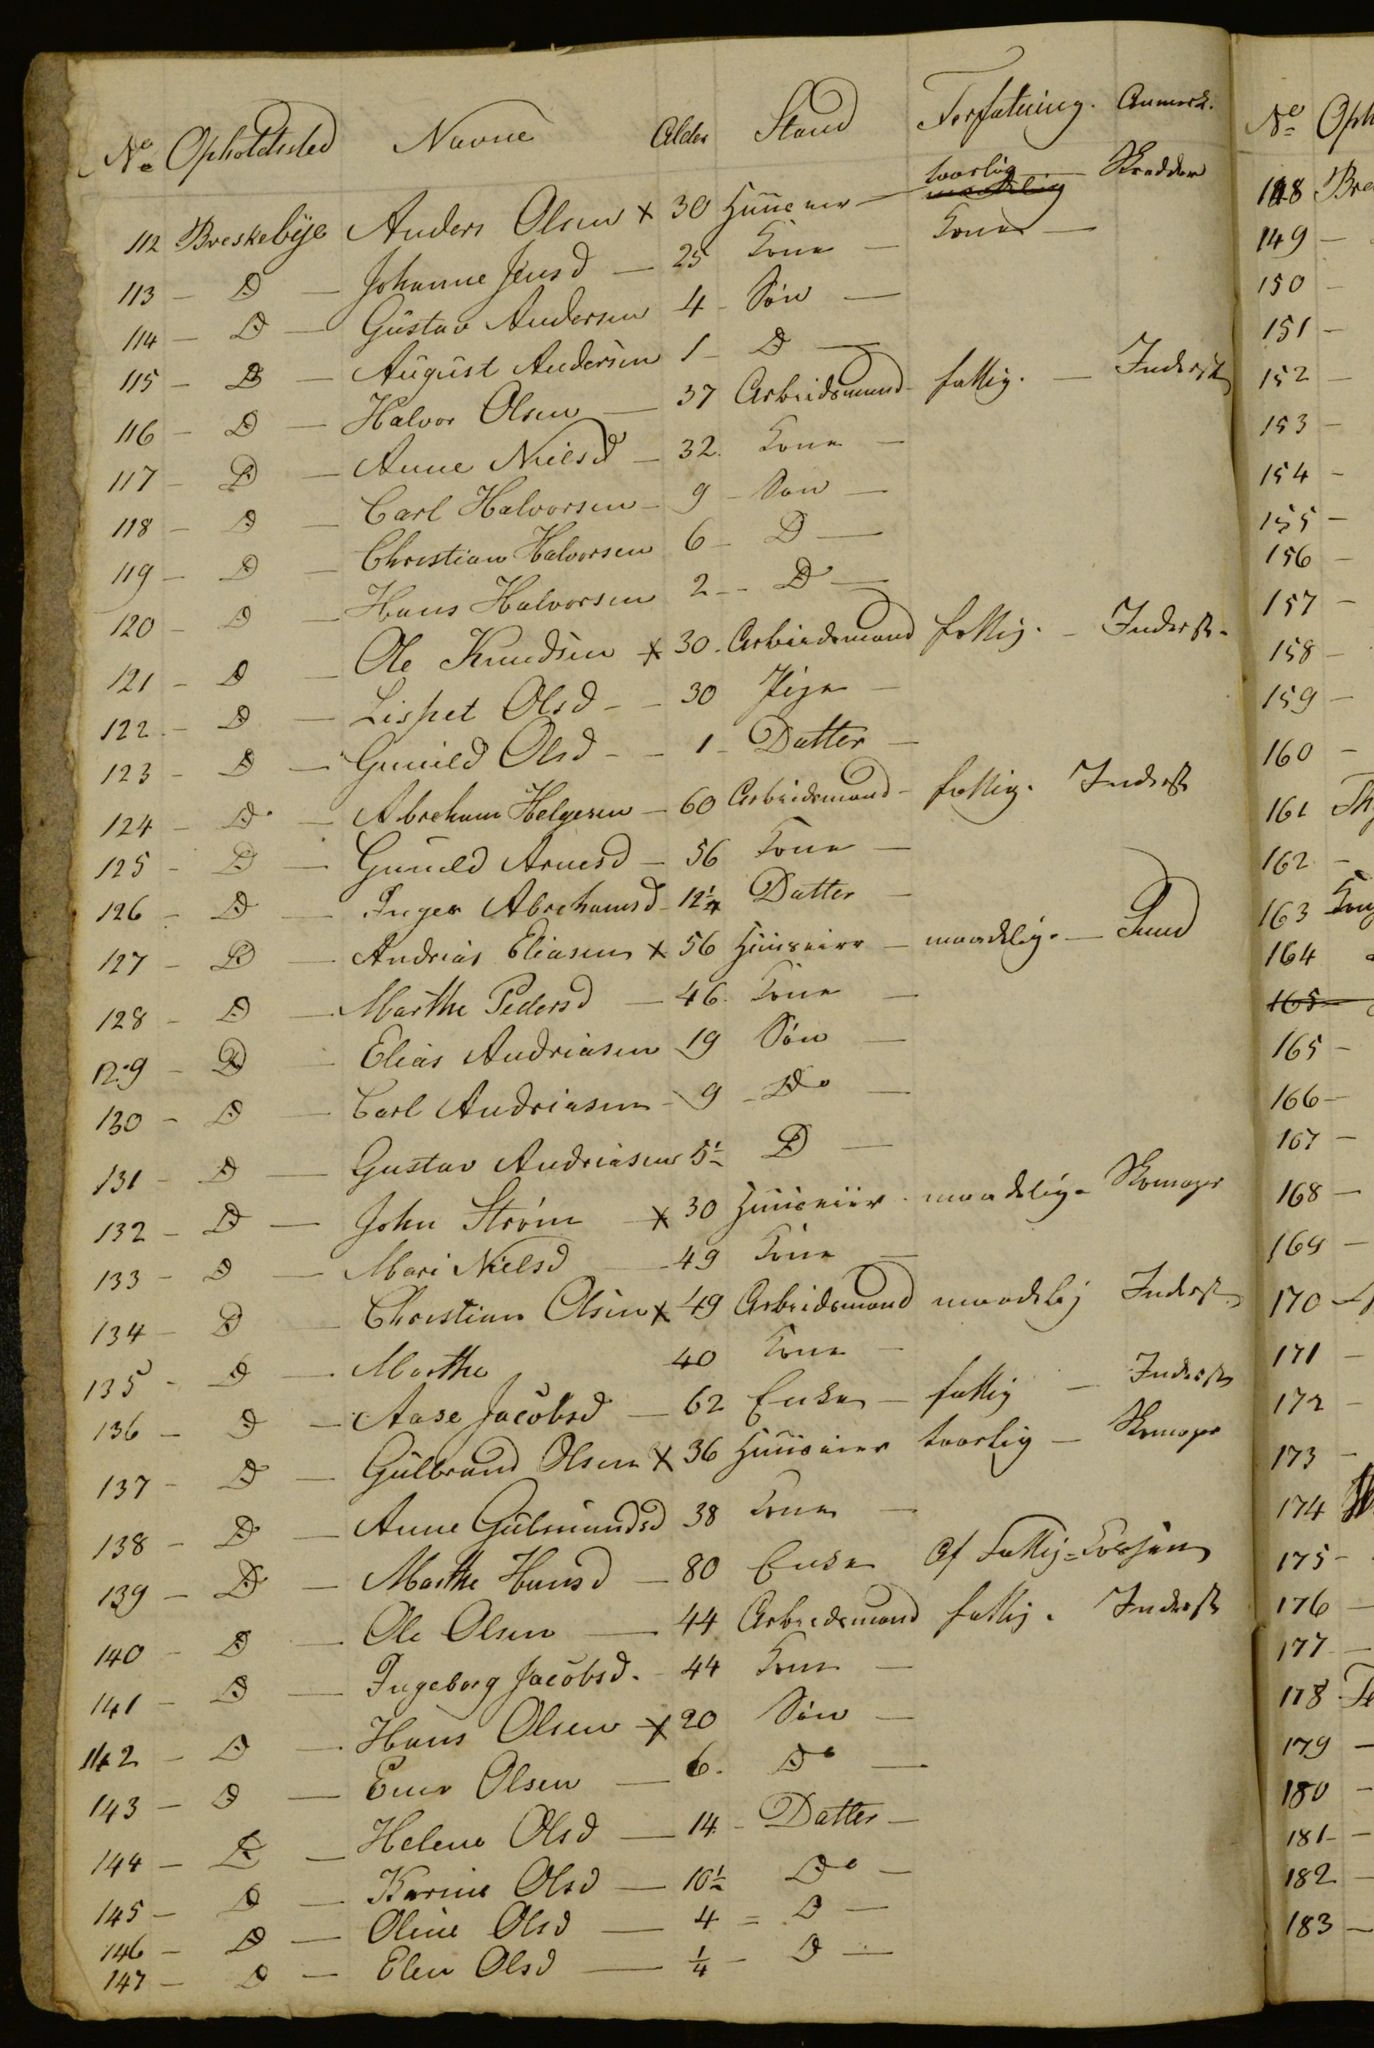 No Opholdsted Navne Alder Stand Forfatning. Anmerk.
112 Breskebÿe Anders Olsen x 30 Huuseier — taarlig maadelig — Skredder
113 — D — Johanne Jensd — 25 Kone — Kone —
114 — D — Gustav Andersen 4 — Søn —
115 — D — August Andersen 1 — D —
116 — D — Halvor Olsen — 37 Arbeidsmand — fattig. — Inderst
117 — D — Anne Nielsd — 32. Kone —
118 — D — Carl Halvorsen — 9 — Søn —
119 — D — Christian Halvorsen 6 — D —
120 — D — Hans Halvorsen 2 — D —
121 — D — Ole Knudsen x 30. Arbeidsmand fattig. — Inderst.
122 — D — Lispet Olsd — 30 Pige —
123 — D — Gunild Olsd — 1 — Datter —
124 — D — Abraham Helgesen — 60 Arbeidsmand — fattig. Inderst
125 — D — Gunild Arnesd — 56 Kone —
126 — D — Inger Abrahamsd — 12 1/4 Datter —
127 — D — Andrias Eliasen x 56 Huuseier — maadelig. —
128 — D — Marthe Pedersd — 46. Kone —
129 — D — Elias Andriasen 19 Søn —
130 — D — Carl Andriasen — 9 — Do —
131 — D — Gustav Andriasen 5 1/2 D —
132 — D — John Strøm x 30 Huuseier — maadelig — Skomager
133 — D — Mari Nielsd — 49 Kone —
134 — D — Christian Olsen x 49 Arbeidsmand maadelig Inderst
135 — D — Marthe 40 Kone —
136 — D — Aase Jacobsd — 62 Enke — fattig — Inderst
137 — D — Gulbrand Olsen x 36 Huuseier taarlig — Skomager
138 — D — Anne Gulmundsd 38 Kone —
139 — D — Marthe Hansd — 80 Enke Af Fattig=Kassen
140 — D — Ole Olsen — 44 Arbeidsmand fattig. Inderst
141 — D — Ingeborg Jacobsd. — 44 Kone —
142 — D — Hans Olsen x 20 Søn —
143 — D — Olsen — 6. Do —
144 — D — Helene Olsd — 14 — Datter —
145 — D — Karine Olsd — 10 1/2 Do —
146 — D — Oline Olsd — 4 = D —
147 — D — Elen Olsd — 1/4 — D —
No Oph
148 Bre
149 —
150 —
151 —
152 —
153 —
154 —
155 —
156 —
157 —
158 —
159 —
160 —
161
162 —
163
164
165
165 —
166 —
167 —
168 —
169 —
170
171 —
172 —
173 —
174
175 —
176 —
177 —
178
179 —
180 —
181 —
182 —
183 —